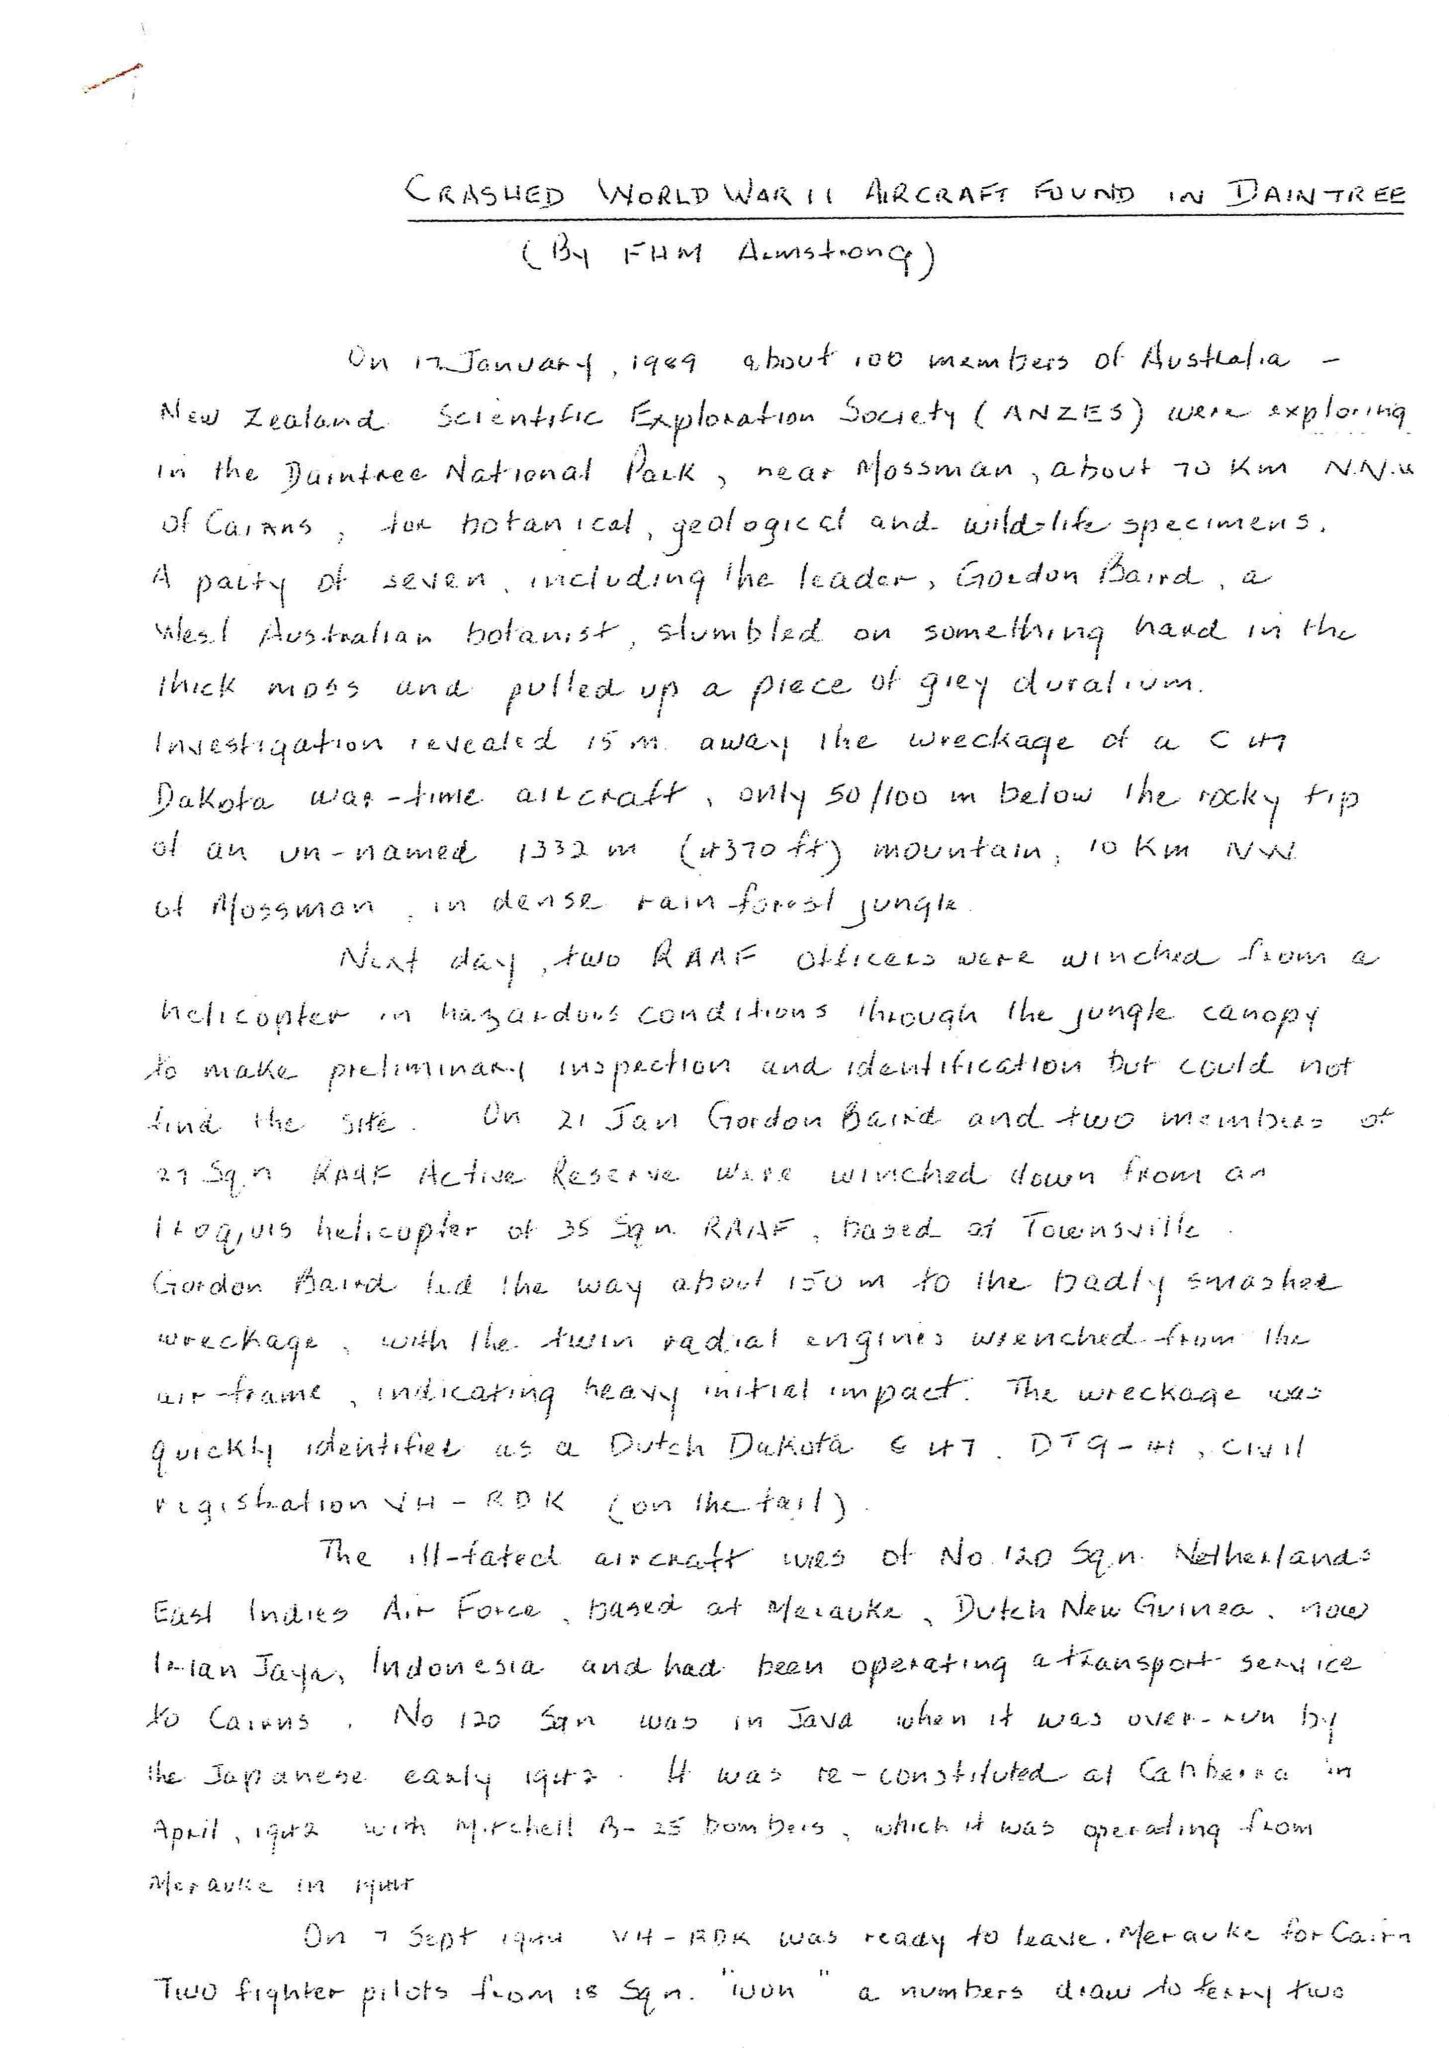 CRASHED WORLD WAR II AIRCRAFT FOUND IN DAINTREE
(By FHM Armstrong)
On 17 January, 1989 about 100 members of Australia -
New Zealand Scientific Exploration Society (ANZES) were exploring
in the Daintree National Park, near Mossman, about 70 Km N.N.W
of Cairns, for botanical, geological and wild-life specimens.
A party of seven, including the leader, Gordon Baird, a
West Australian botanist, stumbled on something hard in the
thick moss and pulled up a piece of grey duralium.
Investigation revealed 15 m away the wreckage of a C 47
Dakota war-time aircraft, only 50/100 m below the rocky tip
of an un-named 1332 m (4370 ft) mountain, 10 Km NW
of Mossman, in dense rain forest jungle.
Next day, two RAAF officers were winched from a
helicopter in hazardous conditions through the jungle canopy
to make preliminary inspection and identification but could not
find the site. On 21 Jan Gordon Baird and two members of
27 Sqn RAAF Active Reserve were winched down from an
Iroquis helicopter of 35 Sqn RAAF, based at Townsville.
Gordon Baird led the way about 150 m to the badly smashed
wreckage, with the twin radial engines wrenched from the
air-frame, indicating heavy initial impact. The wreckage was
quickly identified as a Dutch Dakota C 47. DT9-41, civil
registration VH-RDK (on the tail).
The ill-fated aircraft was of No 120 Sqn. Netherlands
East Indies Air Force, based at Merauke, Dutch New Guinea, now
Irian Jaya, Indonesia and had been operating a transport service
to Cairns. No 120 Sqn was in Java when it was over-run by
the Japanese early 1942. It was re-constituted at Canberra in
April, 1942 with Mitchell B-25 bombers, which it was operating from
Merauke in 1944
On 7 Sept 1944 VH-RDK was ready to leave Merauke for Cairn
Two fighter pilots from 18 Sqn. "won" a numbers draw to ferry two